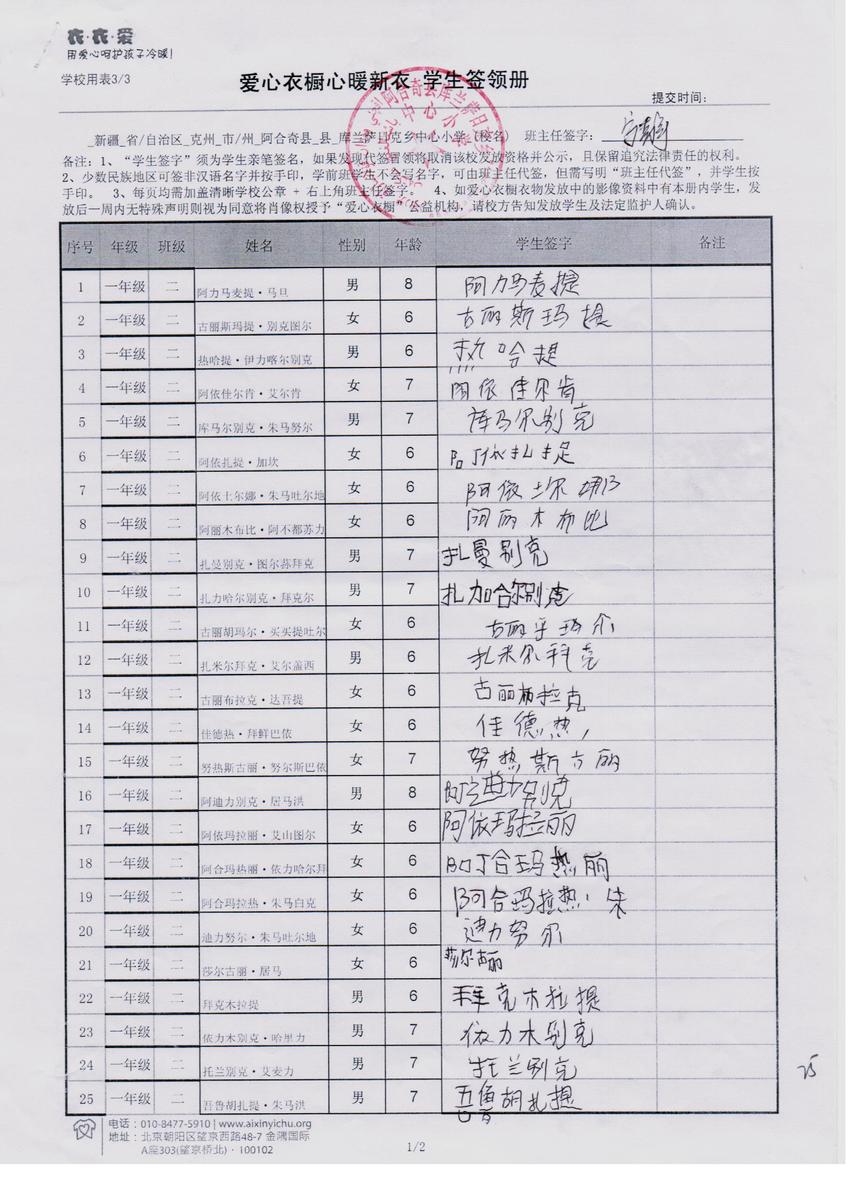 衣·衣·爱
用爱心呵护孩子冷暖!
学校用表3/3
爱心衣橱心暖新衣 学生签领册
提交时间:
新疆_省/自治区_克州_市/州_阿合奇县_县_库兰萨日克乡中心小学(校名) 班主任签字:
备注:1、“学生签字”须为学生亲笔签名,如果发现代签冒领将取消该校发放资格并公示,且保留追究法律责任的权利。
2、少数民族地区可签非汉语名字并按手印,学前班学生不会写名字,可由班主任代签,但需写明“班主任代签”,并学生按
手印。 3、每页均需加盖清晰学校公章 + 右上角班主任签字。 4、如爱心衣橱衣物发放中的影像资料中有本册内学生,发
放后一周内无特殊声明则视为同意将肖像权授予“爱心衣橱”公益机构,请校方告知发放学生及法定监护人确认。
序号 年级 班级 姓名 性别 年龄 学生签字 备注
1 一年级 二 阿力马麦提·马旦 男 8 阿力马麦提
2 一年级 二 古丽斯玛提·别克图尔 女 6 古丽斯玛提
3 一年级 二 热哈提·伊力喀尔别克 男 6 热哈提
4 一年级 二 阿依佳尔肯·艾尔肯 女 7 阿依佳尔肯
5 一年级 二 库马尔别克·朱马努尔 男 7 库马尔别克
6 一年级 二 阿依扎提·加坎 女 6 阿依扎提
7 一年级 二 阿依土尔娜·朱马吐尔地 女 6 阿依土尔娜
8 一年级 二 阿丽木布比·阿不都苏力 女 6 阿丽木布比
9 一年级 二 扎曼别克·图尔荪拜克 男 7 扎曼别克
10 一年级 二 扎力哈尔别克·拜克尔 男 7 扎加合尔别克
11 一年级 二 古丽胡玛尔·买买提吐尔 女 6 古丽乎玛尔
12 一年级 二 扎米尔拜克·艾尔盖西 男 6 扎米尔拜克
13 一年级 二 古丽布拉克·达吾提 女 6 古丽布拉克
14 一年级 二 佳德热·拜鲜巴依 女 6 佳德热
15 一年级 二 努热斯古丽·努尔斯巴依 女 7 努热斯古丽
16 一年级 二 阿迪力别克·居马洪 男 8 别克
17 一年级 二 阿依玛拉丽·艾山图尔 女 6 阿依玛拉丽
18 一年级 二 阿合玛热丽·依力哈尔拜 女 6 阿合玛热丽
19 一年级 二 阿合玛拉热·朱马白克 女 6 阿合玛拉热·朱
20 一年级 二 迪力努尔·朱马吐尔地 女 6 迪力努尔
21 一年级 二 莎尔古丽·居马 女 6 莎尔古丽
22 一年级 二 拜克木拉提 男 6 拜克木拉提
23 一年级 二 依力木别克·哈里力 男 7 依力木别克
24 一年级 二 托兰别克·艾麦力 男 7 托兰别克
25 一年级 二 吾鲁胡扎提·朱马洪 男 7 吾鲁胡扎提
25
电话:010-8477-5910 | www.aixinyichu.org
地址:北京朝阳区望京西路48-7 金隅国际
A座303(望京桥北)·100102
1/2